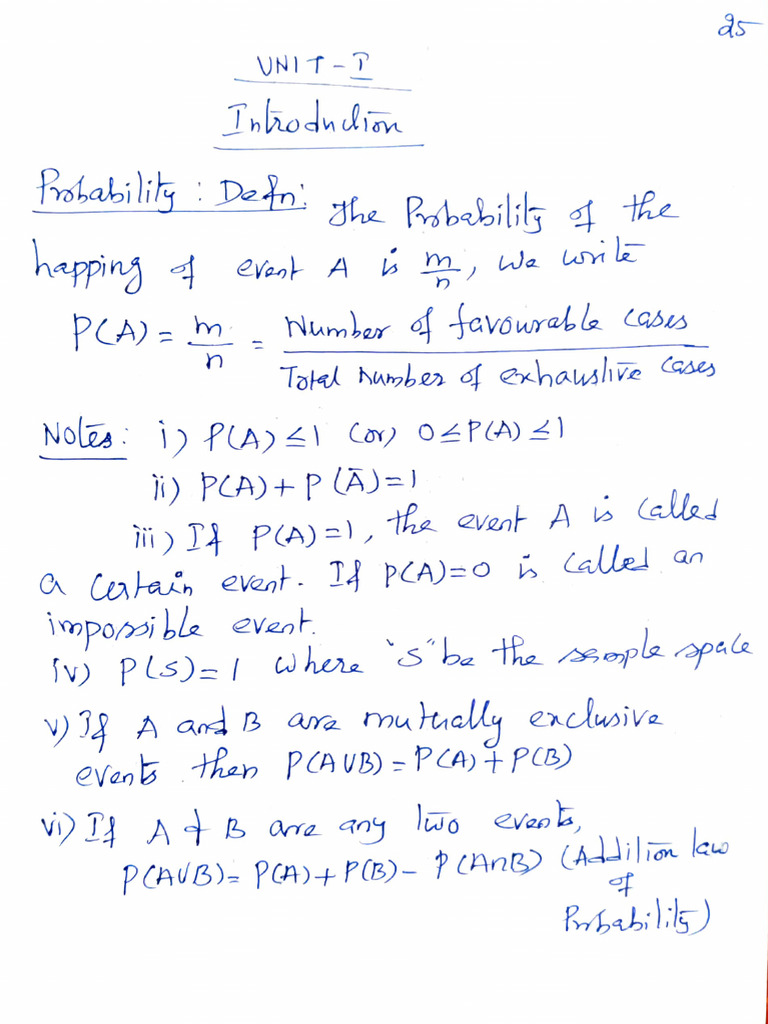 25
UNIT - I
Introduction
Probability : Defn: The Probability of the
happing of event A is m/n, we write
P(A) = m/n = Number of favourable cases / Total Number of exhaustive cases
Notes: i) P(A) ≤ 1 (or) 0 ≤ P(A) ≤ 1
ii) P(A) + P(Ā) = 1
iii) If P(A) = 1, the event A is called
a certain event. If P(A) = 0 is called an
impossible event.
iv) P(S) = 1 where "S" be the sample space
v) If A and B are mutually exclusive
events then P(A∪B) = P(A) + P(B)
vi) If A & B are any two events,
P(A∪B) = P(A) + P(B) - P(A∩B) (Addition law
of
Probability)